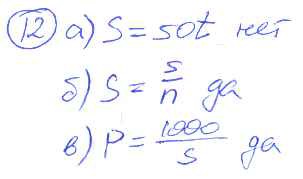 12 а) S = 50t нет
б) S = s/n да
в) P = 1000/s да